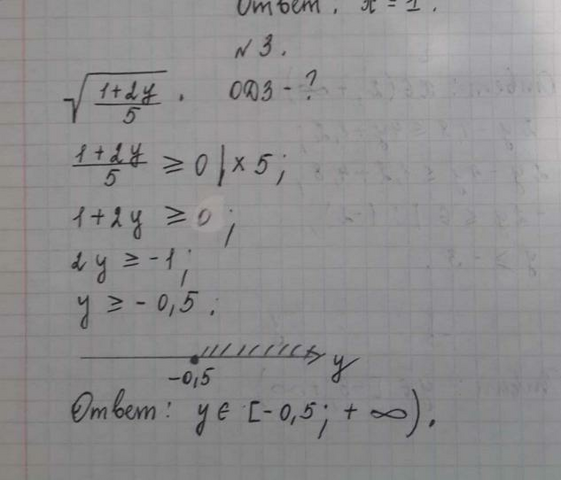 Ответ: x = 1.
N 3.
√((1+2y)/5). ОДЗ - ?
(1+2y)/5 ≥ 0 | × 5;
1+2y ≥ 0;
2y ≥ -1;
y ≥ -0,5.
y
-0,5
Ответ: y ∈ [-0,5; +∞).